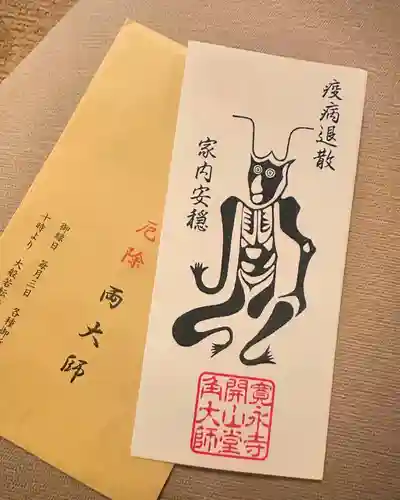 疫病退散
家内安穏
寛永寺
開山堂
角大師
厄除
両大師
御縁日 毎月三日
十時より 大般若転
各種御